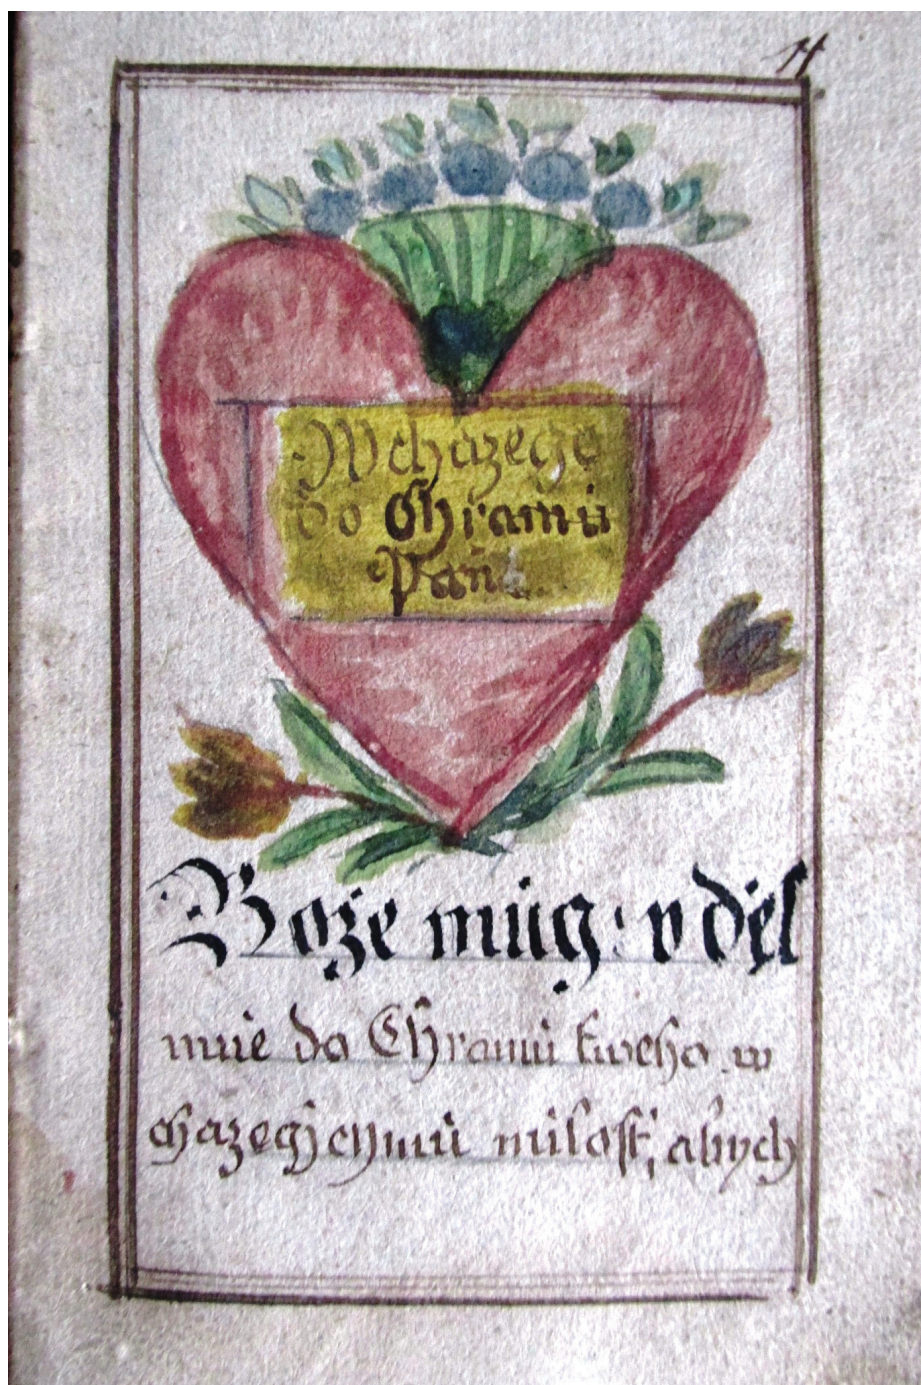 11
Wchazege
do Chramu
Pan
Bože můg: vděl
mně do Chramu tweho w
chazegicymu milost, abych